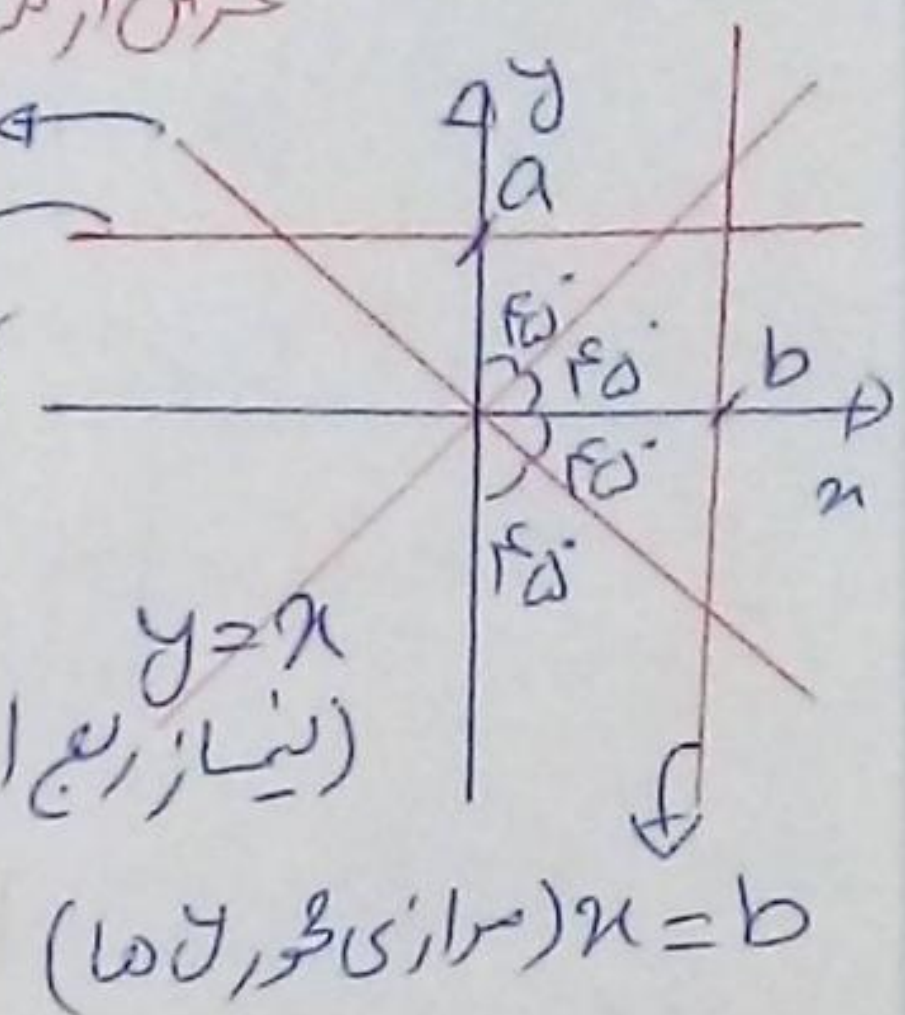 y
a
۴۵°
۴۵°
b
۴۵°
x
۴۵°
y=x
(نیمساز ربع ا
x=b (موازی محور y ها)